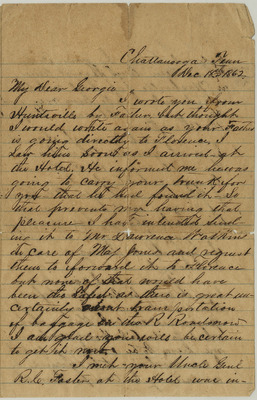 Chattanooga Tenn
Dec 18th 1862.
My Dear Georgie
I wrote you from
Huntsville by Father but thought
I would write again as your Father
is going directly to Florence. I
saw him soon as I arrived at
the Hotel. He informed me he was
going to carry your trunk for
you that he had found it. So
that prevents me having that
pleasure I had intended send
ing it to Mr Lawrence Watkins
in care of Maj and request
them to forward it to Florence
but none of that would have
been the as there is great un
certainty about transportation
of baggage on the R Roads now
I am glad you will be certain
to get it
I met your Uncle Genl
R. C. Foster at the Hotel was in-